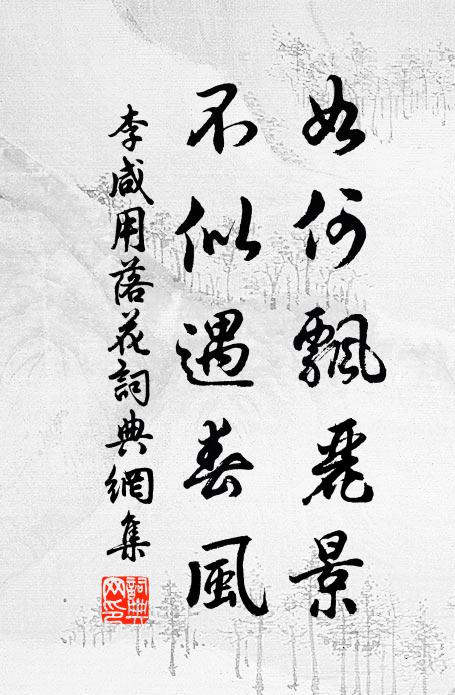 如何飄麗景
不似遇春風
李咸用落花詞典網集
詞典